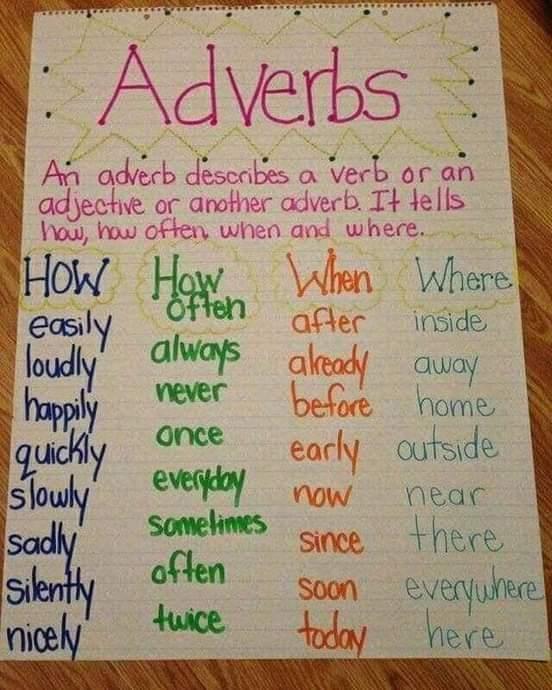 Adverbs
An adverb describes a verb or an
adjective or another adverb. It tells
how, how often, when and where.
How How often When Where
easily always after inside
loudly never already away
happily once before home
quickly everyday early outside
slowly sometimes now near
sadly often since there
silently twice soon everywhere
nicely today here